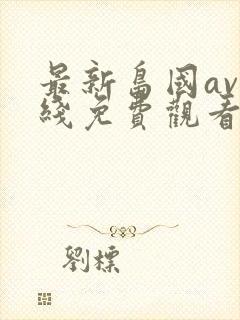 最新島國av
綫免費觀看
劉標